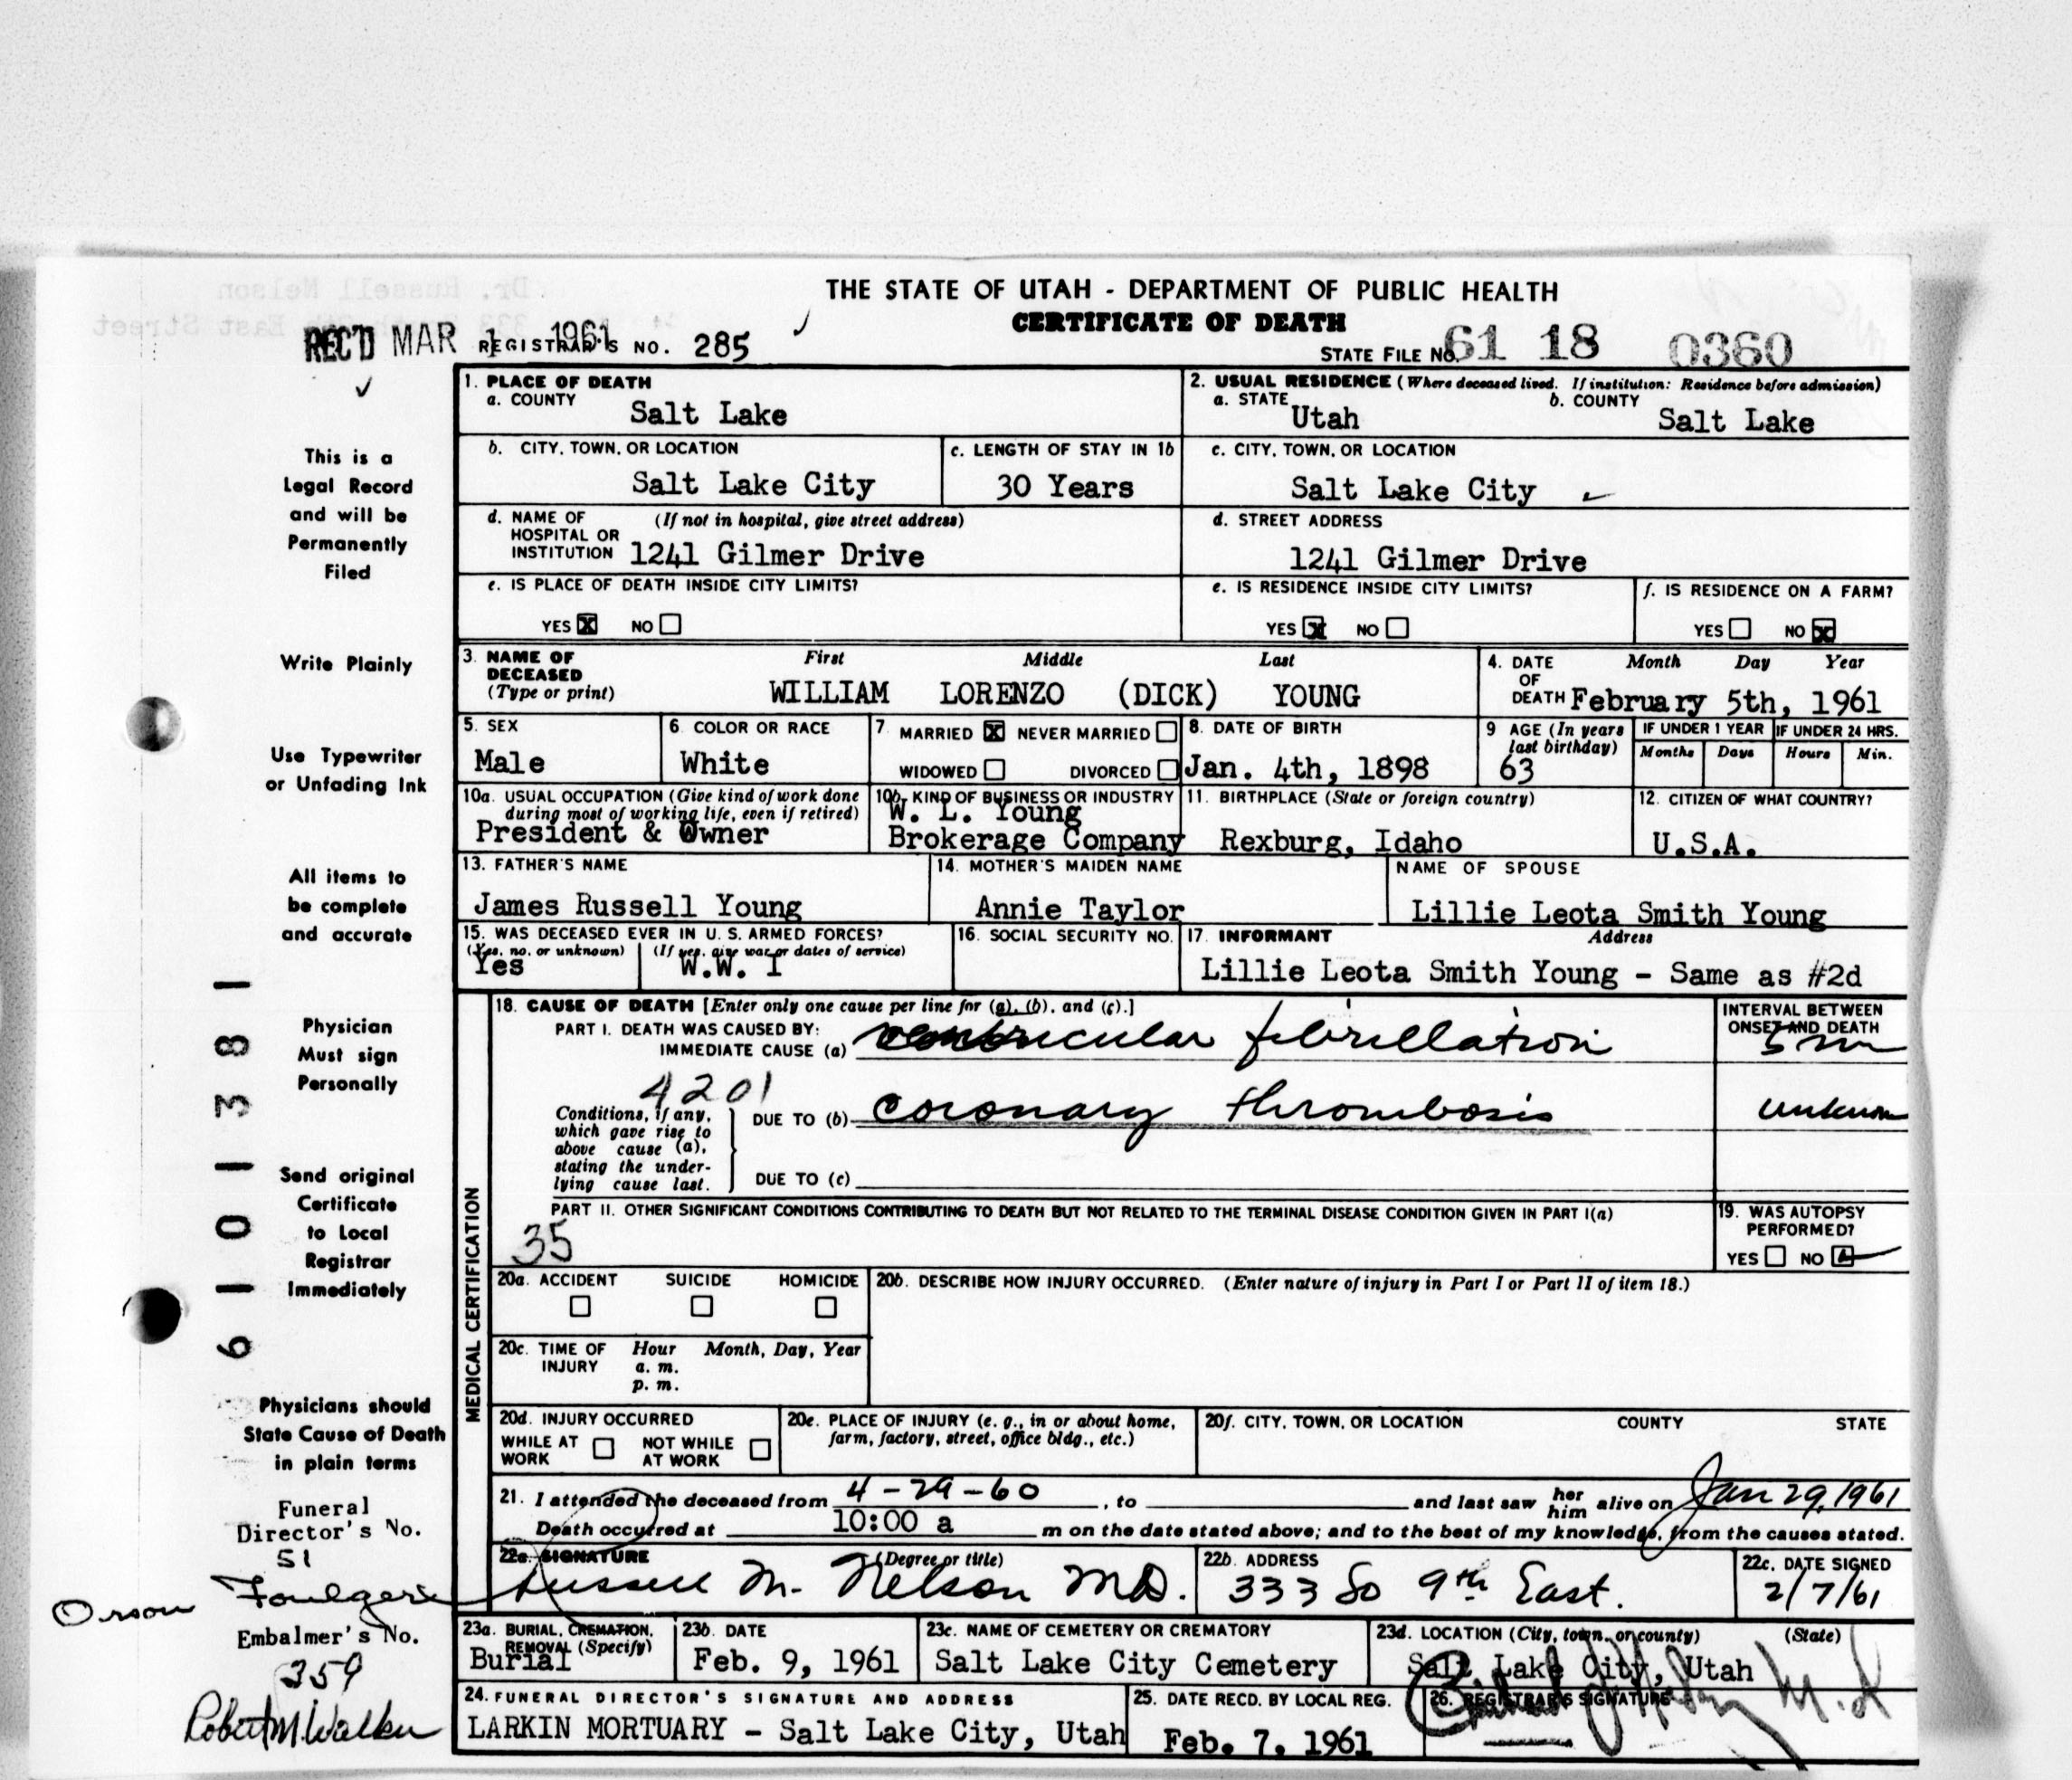 Dr. Russell Nelson
THE STATE OF UTAH - DEPARTMENT OF PUBLIC HEALTH
CERTIFICATE OF DEATH
REC'D MAR 1 1961 REGISTRAR'S NO. 285
STATE FILE NO. 61 18 0360
1. PLACE OF DEATH
a. COUNTY Salt Lake
2. USUAL RESIDENCE (Where deceased lived. If institution: Residence before admission)
a. STATE Utah b. COUNTY Salt Lake
b. CITY, TOWN, OR LOCATION Salt Lake City
c. LENGTH OF STAY IN 1b 30 Years
c. CITY, TOWN, OR LOCATION Salt Lake City
d. NAME OF HOSPITAL OR INSTITUTION (If not in hospital, give street address) 1241 Gilmer Drive
d. STREET ADDRESS 1241 Gilmer Drive
e. IS PLACE OF DEATH INSIDE CITY LIMITS?
YES X NO
e. IS RESIDENCE INSIDE CITY LIMITS?
YES X NO
f. IS RESIDENCE ON A FARM?
YES NO X
3. NAME OF DECEASED (Type or print)
First Middle Last
WILLIAM LORENZO (DICK) YOUNG
4. DATE OF DEATH Month Day Year
February 5th, 1961
5. SEX Male
6. COLOR OR RACE White
7. MARRIED X NEVER MARRIED
WIDOWED DIVORCED
8. DATE OF BIRTH Jan. 4th, 1898
9 AGE (In years last birthday) 63
IF UNDER 1 YEAR Months Days
IF UNDER 24 HRS. Hours Min.
10a. USUAL OCCUPATION (Give kind of work done during most of working life, even if retired)
President & Owner
10b. KIND OF BUSINESS OR INDUSTRY
W. L. Young
Brokerage Company
11. BIRTHPLACE (State or foreign country)
Rexburg, Idaho
12. CITIZEN OF WHAT COUNTRY?
U.S.A.
13. FATHER'S NAME
James Russell Young
14. MOTHER'S MAIDEN NAME
Annie Taylor
NAME OF SPOUSE
Lillie Leota Smith Young
15. WAS DECEASED EVER IN U. S. ARMED FORCES?
(Yes, no. or unknown) (If yes, give war or dates of service)
Yes W.W. I
16. SOCIAL SECURITY NO.
17. INFORMANT Address
Lillie Leota Smith Young - Same as #2d
18. CAUSE OF DEATH [Enter only one cause per line for (a), (b), and (c).]
PART I. DEATH WAS CAUSED BY:
IMMEDIATE CAUSE (a) ventricular fibrillation
INTERVAL BETWEEN ONSET AND DEATH
4201
Conditions, if any, which gave rise to above cause (a), stating the underlying cause last.
DUE TO (b) coronary thrombosis unknown
DUE TO (c)
PART II. OTHER SIGNIFICANT CONDITIONS CONTRIBUTING TO DEATH BUT NOT RELATED TO THE TERMINAL DISEASE CONDITION GIVEN IN PART I(a)
35
19. WAS AUTOPSY PERFORMED?
YES NO
MEDICAL CERTIFICATION
20a. ACCIDENT SUICIDE HOMICIDE
20b. DESCRIBE HOW INJURY OCCURRED. (Enter nature of injury in Part I or Part II of item 18.)
20c. TIME OF INJURY Hour Month, Day, Year
a. m.
p. m.
20d. INJURY OCCURRED
WHILE AT WORK NOT WHILE AT WORK
20e. PLACE OF INJURY (e. g., in or about home, farm, factory, street, office bldg., etc.)
20f. CITY, TOWN, OR LOCATION COUNTY STATE
21. I attended the deceased from 4-29-60, to and last saw her him alive on Jan 29, 1961
Death occurred at 10:00 a m on the date stated above; and to the best of my knowledge, from the causes stated.
22a. SIGNATURE (Degree or title)
Russell M. Nelson MD.
22b. ADDRESS
333 So 9th East.
22c. DATE SIGNED
2/7/61
23a. BURIAL, CREMATION, REMOVAL (Specify)
Burial
23b. DATE
Feb. 9, 1961
23c. NAME OF CEMETERY OR CREMATORY
Salt Lake City Cemetery
23d. LOCATION (City, town, or county) (State)
Salt Lake City, Utah
24. FUNERAL DIRECTOR'S SIGNATURE AND ADDRESS
LARKIN MORTUARY - Salt Lake City, Utah
25. DATE RECD. BY LOCAL REG.
Feb. 7, 1961
26. REGISTRAR'S SIGNATURE
This is a
Legal Record
and will be
Permanently
Filed
Write Plainly
Use Typewriter
or Unfading Ink
All items to
be complete
and accurate
Physician
Must sign
Personally
Send original
Certificate
to Local
Registrar
Immediately
Physicians should
State Cause of Death
in plain terms
Funeral
Director's No.
51
Orson Foulger
Embalmer's No.
359
Robert M. Walker
6101381